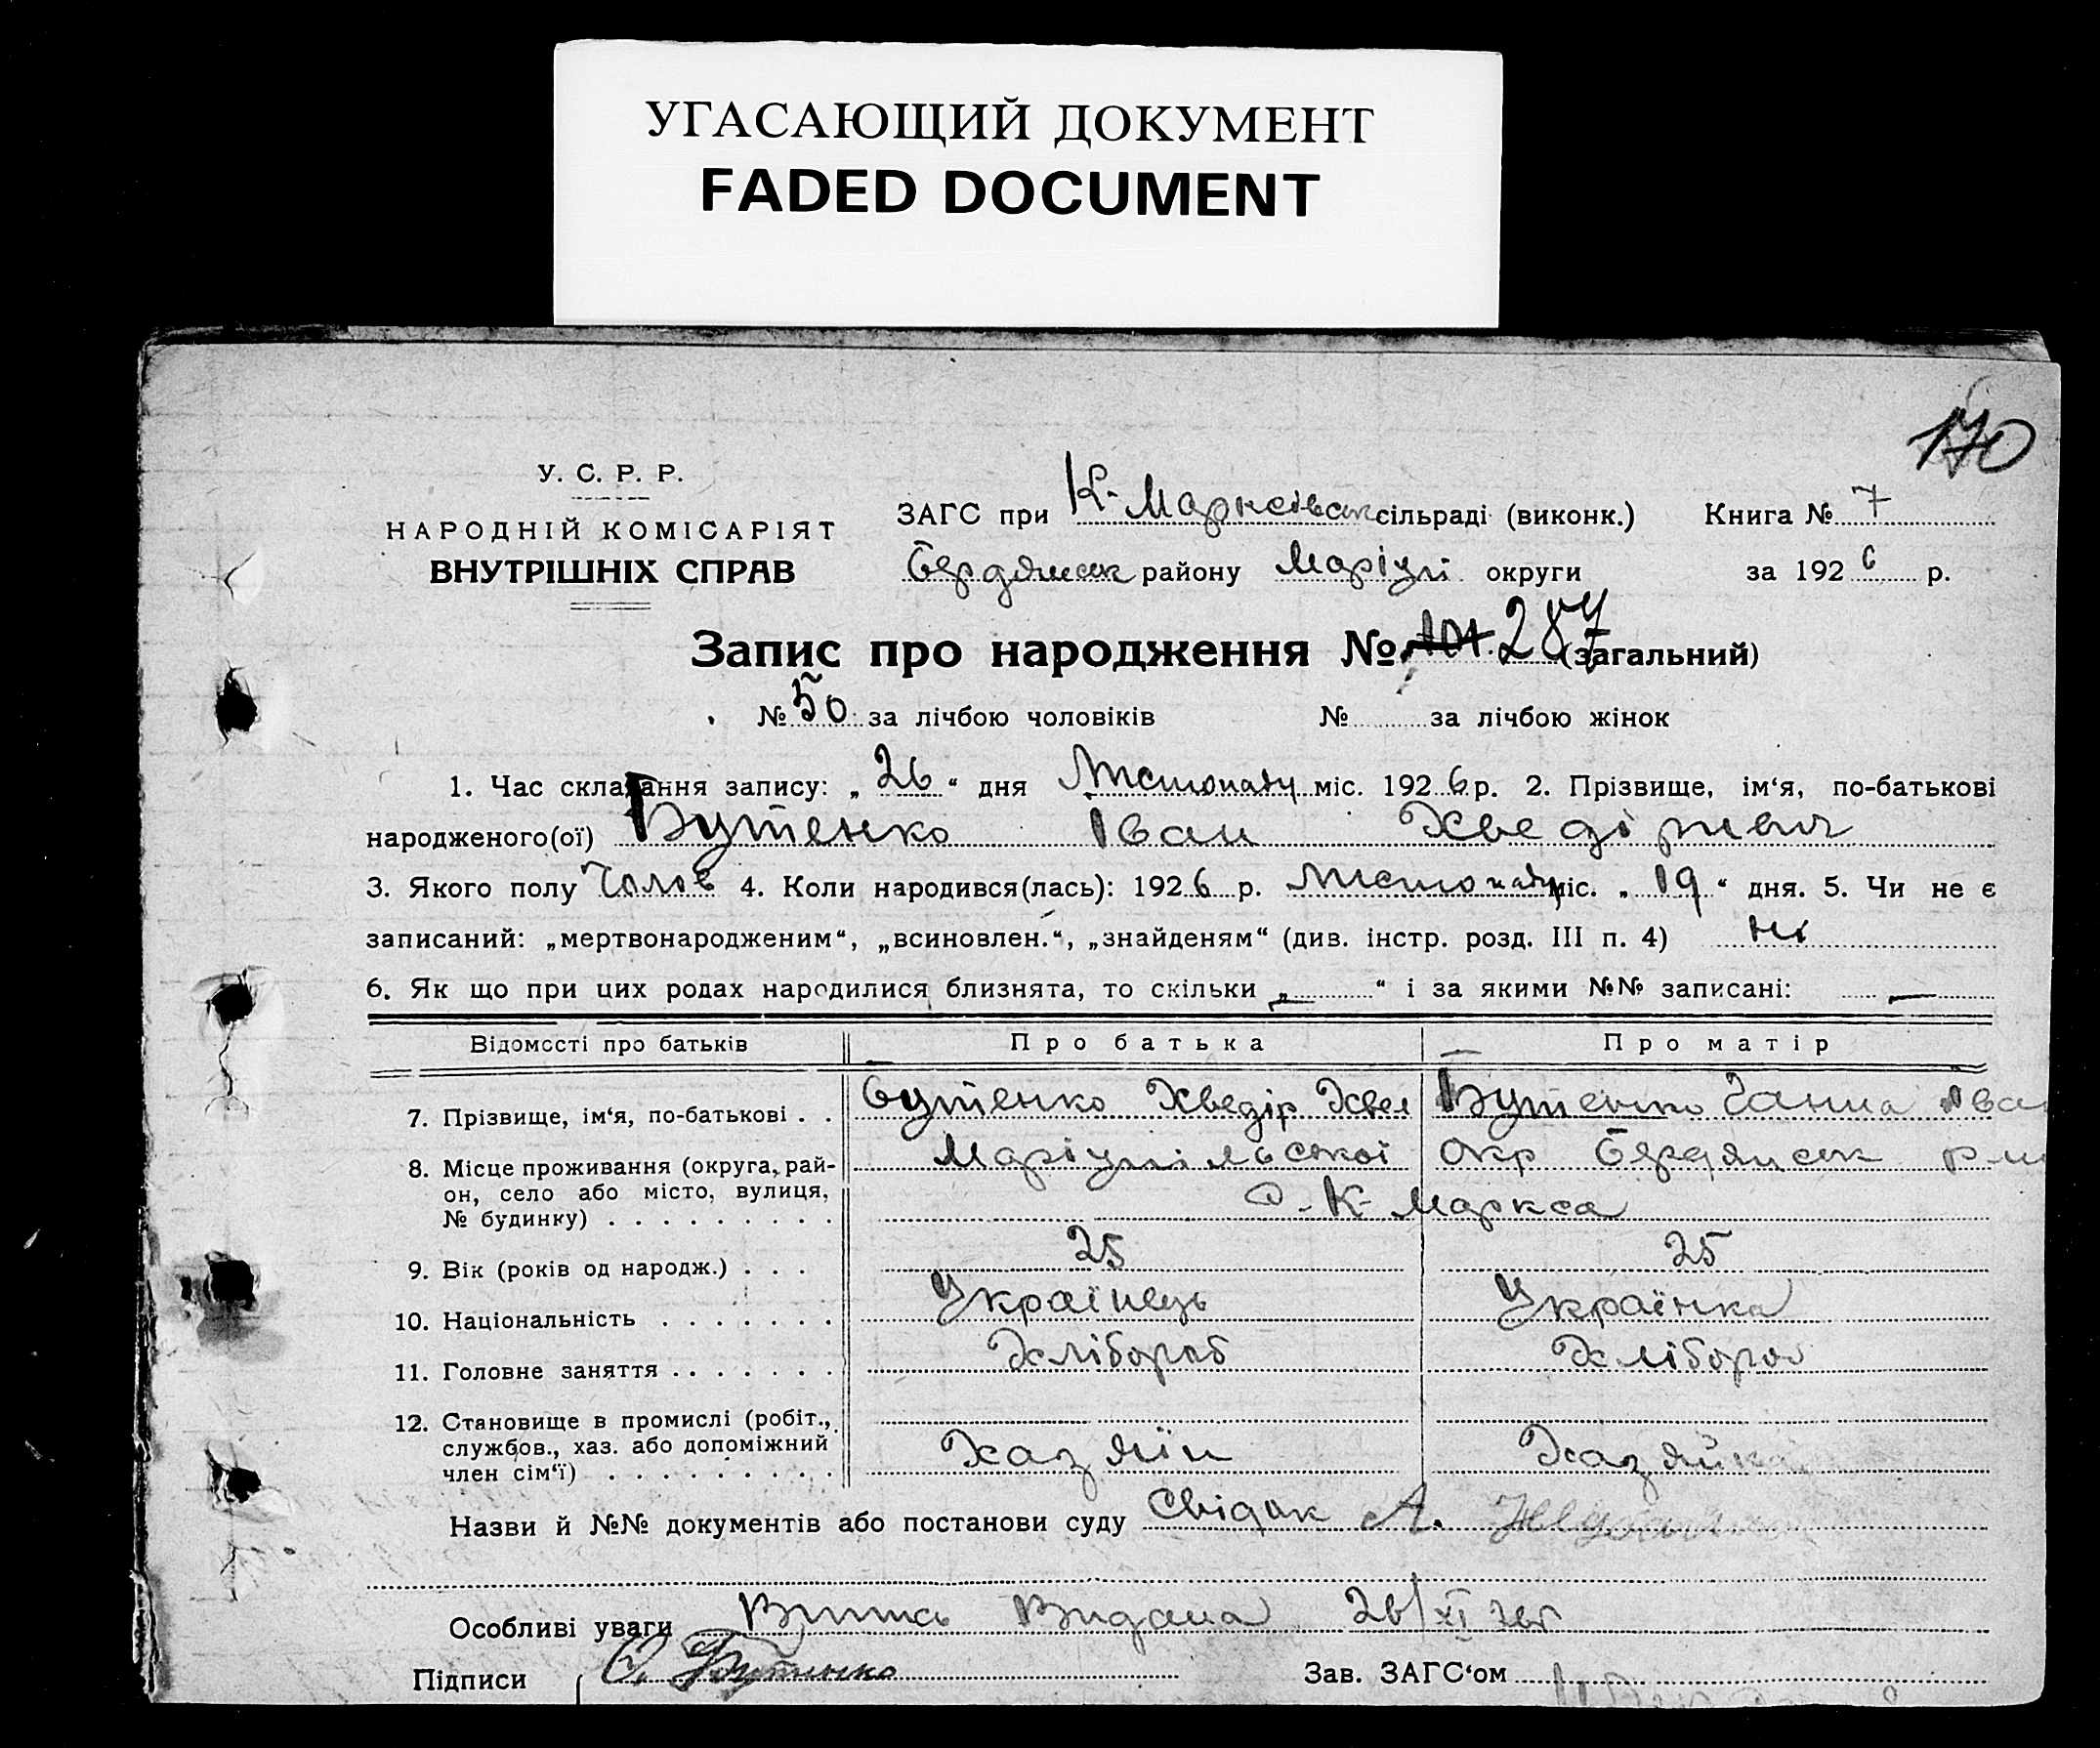 УГАСАЮЩИЙ ДОКУМЕНТ
FADED DOCUMENT
170
У. С. Р. Р.
НАРОДНІЙ КОМІСАРІЯТ
ВНУТРІШНІХ СПРАВ
ЗАГС при К-Марксівак сільраді (виконк.) Книга № 7
Бердянськ району Маріупі округи за 1926 р.
Запис про народження № 101. 287 (загальний)
№ 50 за лічбою чоловіків № за лічбою жінок
1. Час складання запису: „ 26 “ дня Листопаду міс. 1926 р. 2. Прізвище, ім‘я, по-батькові
народженого(ої) Бутенко Іван Хведірович
3. Якого полу Чолов 4. Коли народився(лась): 1926 р. Листопаду міс. „ 19 “ дня. 5. Чи не є
записаний: „мертвонародженим“, „всиновлен.“, „знайденям“ (див. інстр. розд. III п. 4) ні
6. Як що при цих родах народилися близнята, то скільки „ — “ і за якими №№ записані: —
Відомості про батьків Про батька Про матір
7. Прізвище, ім‘я, по-батькові . . Бутенко Хведір Хвед Бутенко Ганна Іва
8. Місце проживання (округа, рай- Маріупільської Окр Бердянськ р-н
он, село або місто, вулиця, с. К-Маркса
№ будинку) . . . . . . . . .
9. Вік (років од народж.) . . . 25 25
10. Національність . . . . . . . Українець Українка
11. Головне заняття . . . . . . . Хлібороб Хлібороб
12. Становище в промислі (робіт.,
службов., хаз. або допоміжний Хазяїн Хазяйка
член сім‘ї) . . . . . . . . .
Назви й №№ документів або постанови суду Свідок А.
Особливі уваги Випись Видана 26/XI 26г
Підписи Бутенко Зав. ЗАГС‘ом